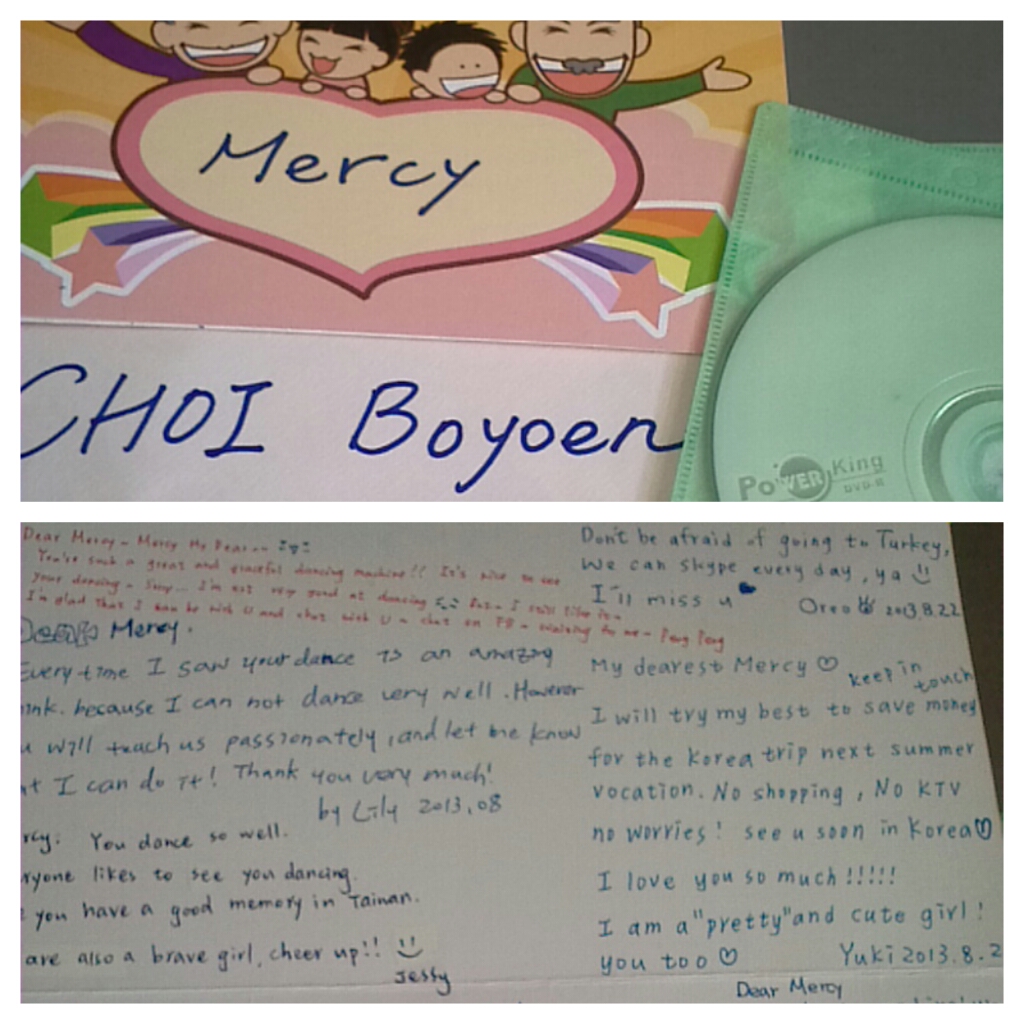 Mercy
CHOI Boyoen
PoWER King
DVD-R
Dear Mercy ~ Mercy My Dear~~
You're such a great and graceful dancing machine!! It's nice to see
your dancing ~ Sorry... I'm not very good at dancing But~ I still like it~
I'm glad that I can be with U and chat with U ~ chat on FB ~ waiting for me ~ Pong Pong
Dear Mercy.
Every time I saw your dance is an amazing
ink. because I can not dance very well. However
u will teach us passionately, and let me know
t I can do it! Thank you very much!
by Lily 2013.08
rcy: You dance so well.
ryone likes to see you dancing.
you have a good memory in Tainan.
are also a brave girl, cheer up!!
Jessy
Don't be afraid of going to Turkey,
We can skype every day, ya
I'll miss u
Oreo 2013.8.22
My dearest Mercy ♡ keep in touch
I will try my best to save money
for the Korea trip next summer
vocation. No shopping, No KTV
no worries! see u soon in Korea ♡
I love you so much!!!!!
I am a "pretty" and cute girl!
you too ♡ Yuki 2013.8.2
Dear Mercy